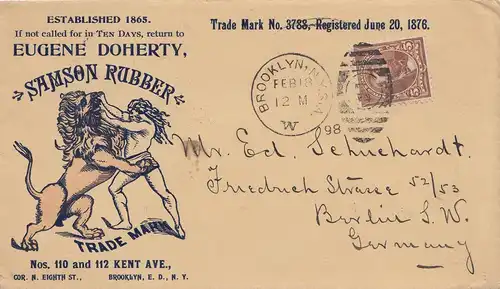 ESTABLISHED 1865.
If not called for in TEN DAYS, return to
EUGENE DOHERTY,
SAMSON RUBBER
TRADE MARK
Nos. 110 and 112 KENT AVE.,
COR. N. EIGHTH ST., BROOKLYN, E. D., N. Y.
Trade Mark No. 3788, Registered June 20, 1876.
BROOKLYN, N.Y. U.S.A.
FEB 18
12 M
98
W
Mr. Ed. Schuchardt.
Friedrich Strasse 52/53
Berlin S. W.
Germany